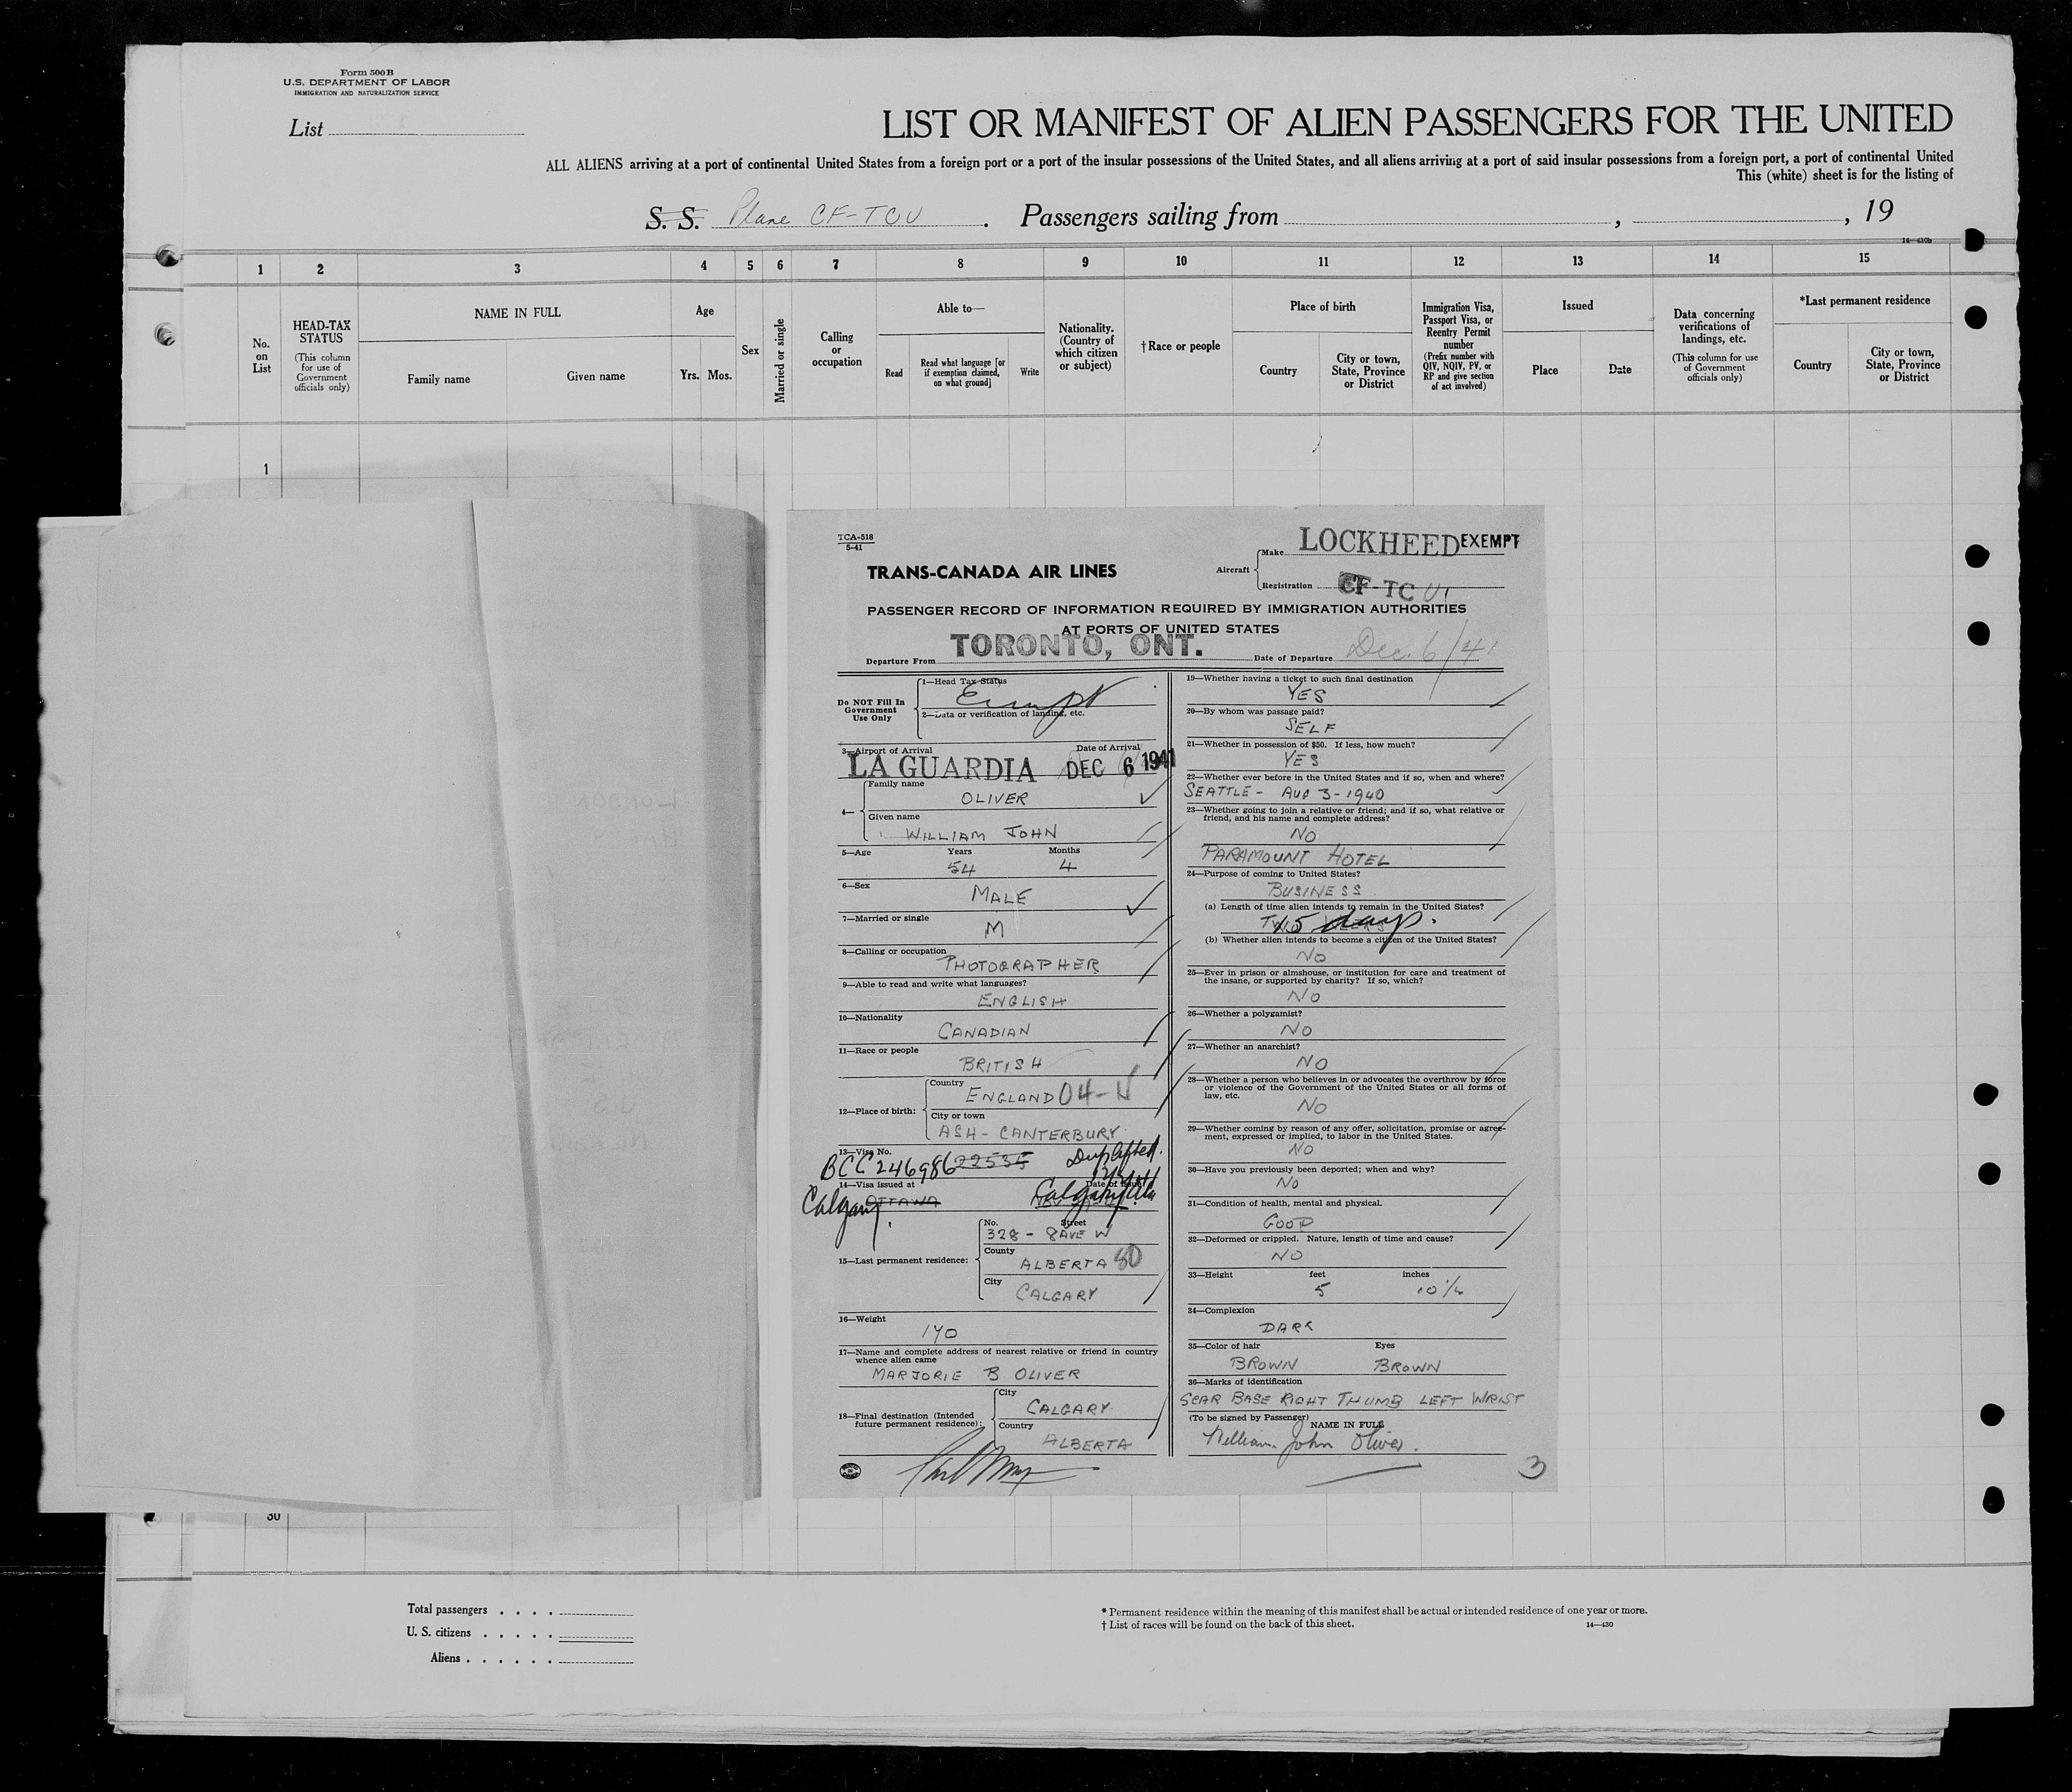 Form 500 B
U.S. DEPARTMENT OF LABOR
IMMIGRATION AND NATURALIZATION SERVICE
List
LIST OR MANIFEST OF ALIEN PASSENGERS FOR THE UNITED
ALL ALIENS arriving at a port of continental United States from a foreign port or a port of the insular possessions of the United States, and all aliens arriving at a port of said insular possessions from a foreign port, a port of continental United
This (white) sheet is for the listing of
S. S. Plane CF-TCU . Passengers sailing from , , 19
14—430b
1 2 3 4 5 6 7 8 9 10 11 12 13 14 15
No. on List
HEAD-TAX STATUS
(This column for use of Government officials only)
NAME IN FULL
Family name Given name
Age
Yrs. Mos.
Sex
Married or single
Calling or occupation
Able to—
Read
Read what language [or if exemption claimed, on what ground]
Write
Nationality. (Country of which citizen or subject)
†Race or people
Place of birth
Country
City or town, State, Province or District
Immigration Visa, Passport Visa, or Reentry Permit number
(Prefix number with QIV, NQIV, PV, or RP and give section of act involved)
Issued
Place Date
Data concerning verifications of landings, etc.
(This column for use of Government officials only)
*Last permanent residence
Country
City or town, State, Province or District
1
TCA-518
5-41
TRANS-CANADA AIR LINES
Aircraft
Make LOCKHEED EXEMPT
Registration CF-TC U
PASSENGER RECORD OF INFORMATION REQUIRED BY IMMIGRATION AUTHORITIES
AT PORTS OF UNITED STATES
Departure From TORONTO, ONT. Date of Departure Dec. 6/41
Do NOT Fill In Government Use Only
1—Head Tax Status
Exempt
2—Data or verification of landing, etc.
3—Airport of Arrival Date of Arrival
LA GUARDIA DEC 6 1941
4—
Family name
OLIVER
Given name
WILLIAM JOHN
5—Age Years Months
54 4
6—Sex
MALE
7—Married or single
M
8—Calling or occupation
PHOTOGRAPHER
9—Able to read and write what languages?
ENGLISH
10—Nationality
CANADIAN
11—Race or people
BRITISH
12—Place of birth:
Country
ENGLAND 04-N
City or town
ASH - CANTERBURY
13—Visa No.
BCC 246986 22535
14—Visa issued at Date of Issue
Calgary OTTAWA Calgary Alta
15—Last permanent residence:
No. Street
328 - 8 AVE W
County
ALBERTA 80
City
CALGARY
16—Weight
140
17—Name and complete address of nearest relative or friend in country whence alien came
MARJORIE B OLIVER
18—Final destination (Intended future permanent residence):
City
CALGARY
Country
ALBERTA
19—Whether having a ticket to such final destination
YES
20—By whom was passage paid?
SELF
21—Whether in possession of $50. If less, how much?
YES
22—Whether ever before in the United States and if so, when and where?
SEATTLE - AUG 3 - 1940
23—Whether going to join a relative or friend; and if so, what relative or friend, and his name and complete address?
NO
PARAMOUNT HOTEL
24—Purpose of coming to United States?
BUSINESS
(a) Length of time alien intends to remain in the United States?
15 days.
(b) Whether alien intends to become a citizen of the United States?
NO
25—Ever in prison or almshouse, or institution for care and treatment of the insane, or supported by charity? If so, which?
NO
26—Whether a polygamist?
NO
27—Whether an anarchist?
NO
28—Whether a person who believes in or advocates the overthrow by force or violence of the Government of the United States or all forms of law, etc.
NO
29—Whether coming by reason of any offer, solicitation, promise or agreement, expressed or implied, to labor in the United States.
NO
30—Have you previously been deported; when and why?
NO
31—Condition of health, mental and physical.
GOOD
32—Deformed or crippled. Nature, length of time and cause?
NO
33—Height feet inches
5 10 1/2
34—Complexion
DARK
35—Color of hair Eyes
BROWN BROWN
36—Marks of identification
SCAR BASE RIGHT THUMB LEFT WRIST
(To be signed by Passenger) NAME IN FULL
William John Oliver.
3
30
Total passengers . . . .
U. S. citizens . . . . .
Aliens . . . . . .
* Permanent residence within the meaning of this manifest shall be actual or intended residence of one year or more.
† List of races will be found on the back of this sheet.
14—430